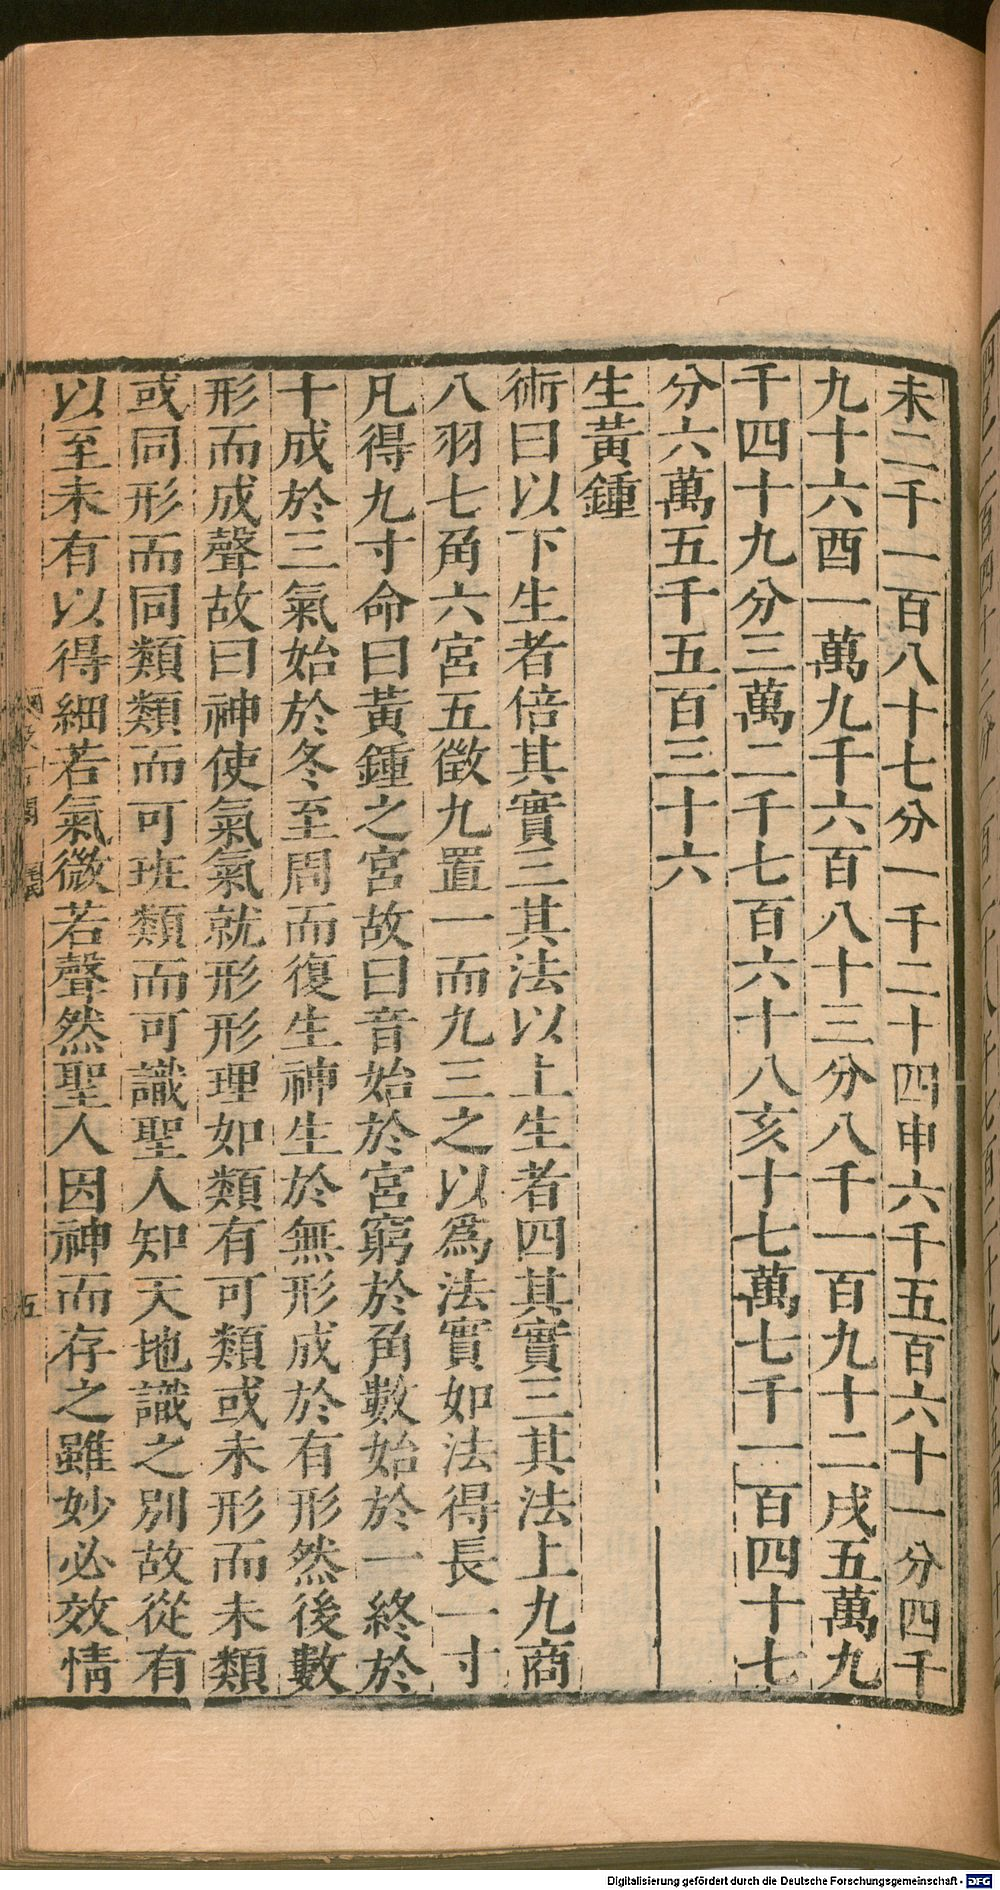 未二千一百八十七分一千二十四申六千五百六十一分四千
九十六酉一萬九千六百八十三分八千一百九十二戌五萬九
千四十九分三萬二千七百六十八亥十七萬七千一百四十七
分六萬五千五百三十六
生黃鍾
術曰以下生者倍其實三其法以上生者四其實三其法上九商
八羽七角六宮五徵九置一而九三之以爲法實如法得長一寸
凡得九寸命曰黃鍾之宮故曰音始於宮窮於角數始於一終於
十成於三氣始於冬至周而復生神生於無形成於有形然後數
形而成聲故曰神使氣氣就形形理如類有可類或未形而未類
或同形而同類類而可班類而可識聖人知天地識之別故從有
以至未有以得細若氣微若聲然聖人因神而存之雖妙必效情
五
Digitalisierung gefördert durch die Deutsche Forschungsgemeinschaft - DFG